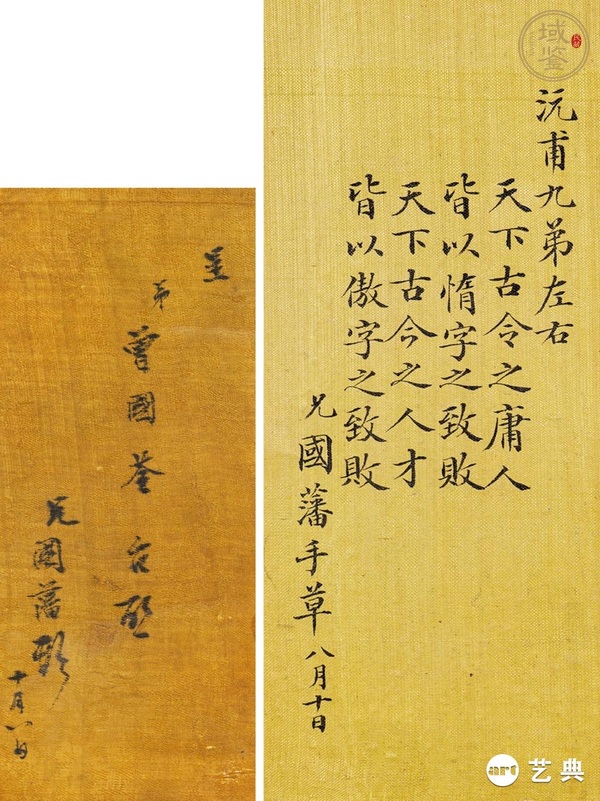 沅甫九弟左右
天下古今之庸人
皆以惰字之致敗
天下古今之人才
皆以傲字之致敗
兄國藩手草 八月十日
呈
弟
曾國荃台啟
兄國藩頓
十月八日
域鉴
art 艺典